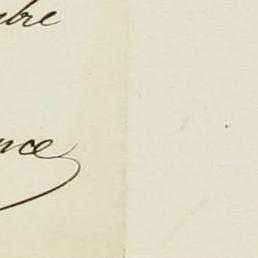 mbre
nce